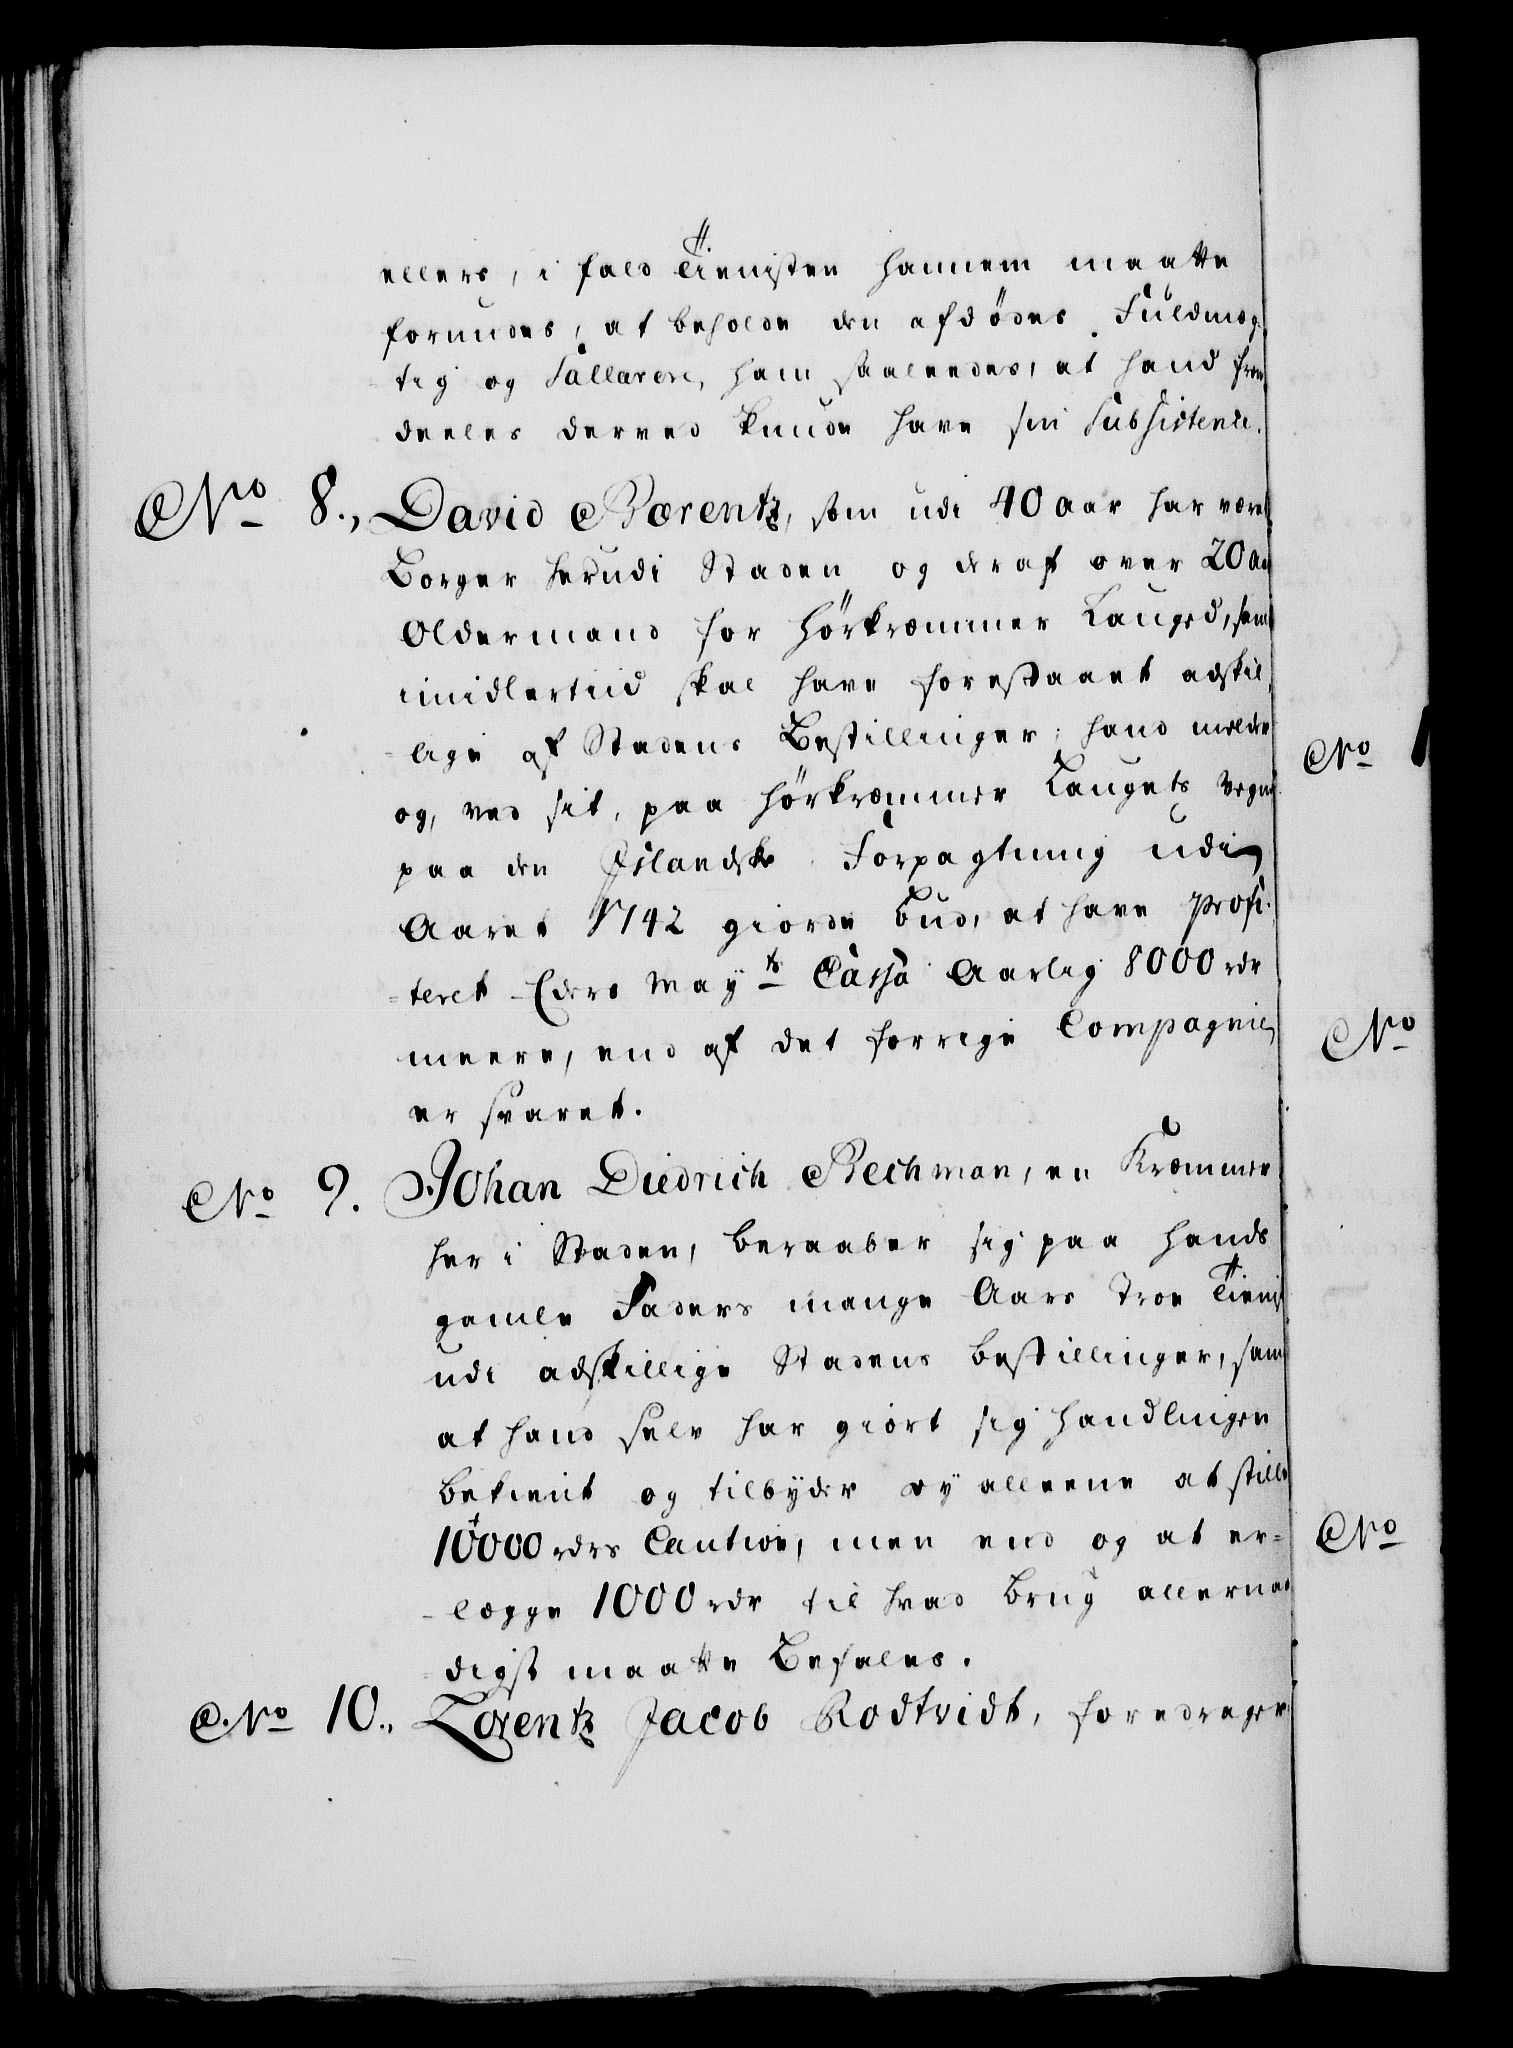 ellers, i fald Tienisten hannem maatte
forundes, at beholde den afdødes Fuldmæg-
-tig og Sallarere, ham saaleedes, at hand frem
deeles derved kunde have sin Subsistence.
No 8., David Bærentz, som udi 40 aar har været
Borger herudi Staden og deraf over 20 Aar
Oldermand for Hørkræmmer Lauged, samt
imidlertiid skal have forestaaet adskil-
-lige af Stadens Bestillinger; hand melder
og, ved sit, paa Hørkræmmer Laugets vegne
paa den Jslandske Forpagtning udi
Aaret 1742 giorde Bud, at have profi-
-teret Eders Mayts Cassa Aarlig 8000 rdr
meere, end af det forrige Compagnie
er svaret.
No 9. Johan Diedrich Bechman, en Kræmmer
her i Staden, beraaber sig paa hands
gamle Faders mange Aars Troe Tienist
udi adskillige Stadens bestillinger, samt
at hand selv har giort sig Handlingen
bekient og tilbyder ey alleene at stille
10000 rdrs Caution, men end og at er-
-lægge 1000 rdr til hvad Brug allernaa
digst maatte Befales.
No 10., Lorentz Jacob Rodtvidt, foredrager
No 1
No
No